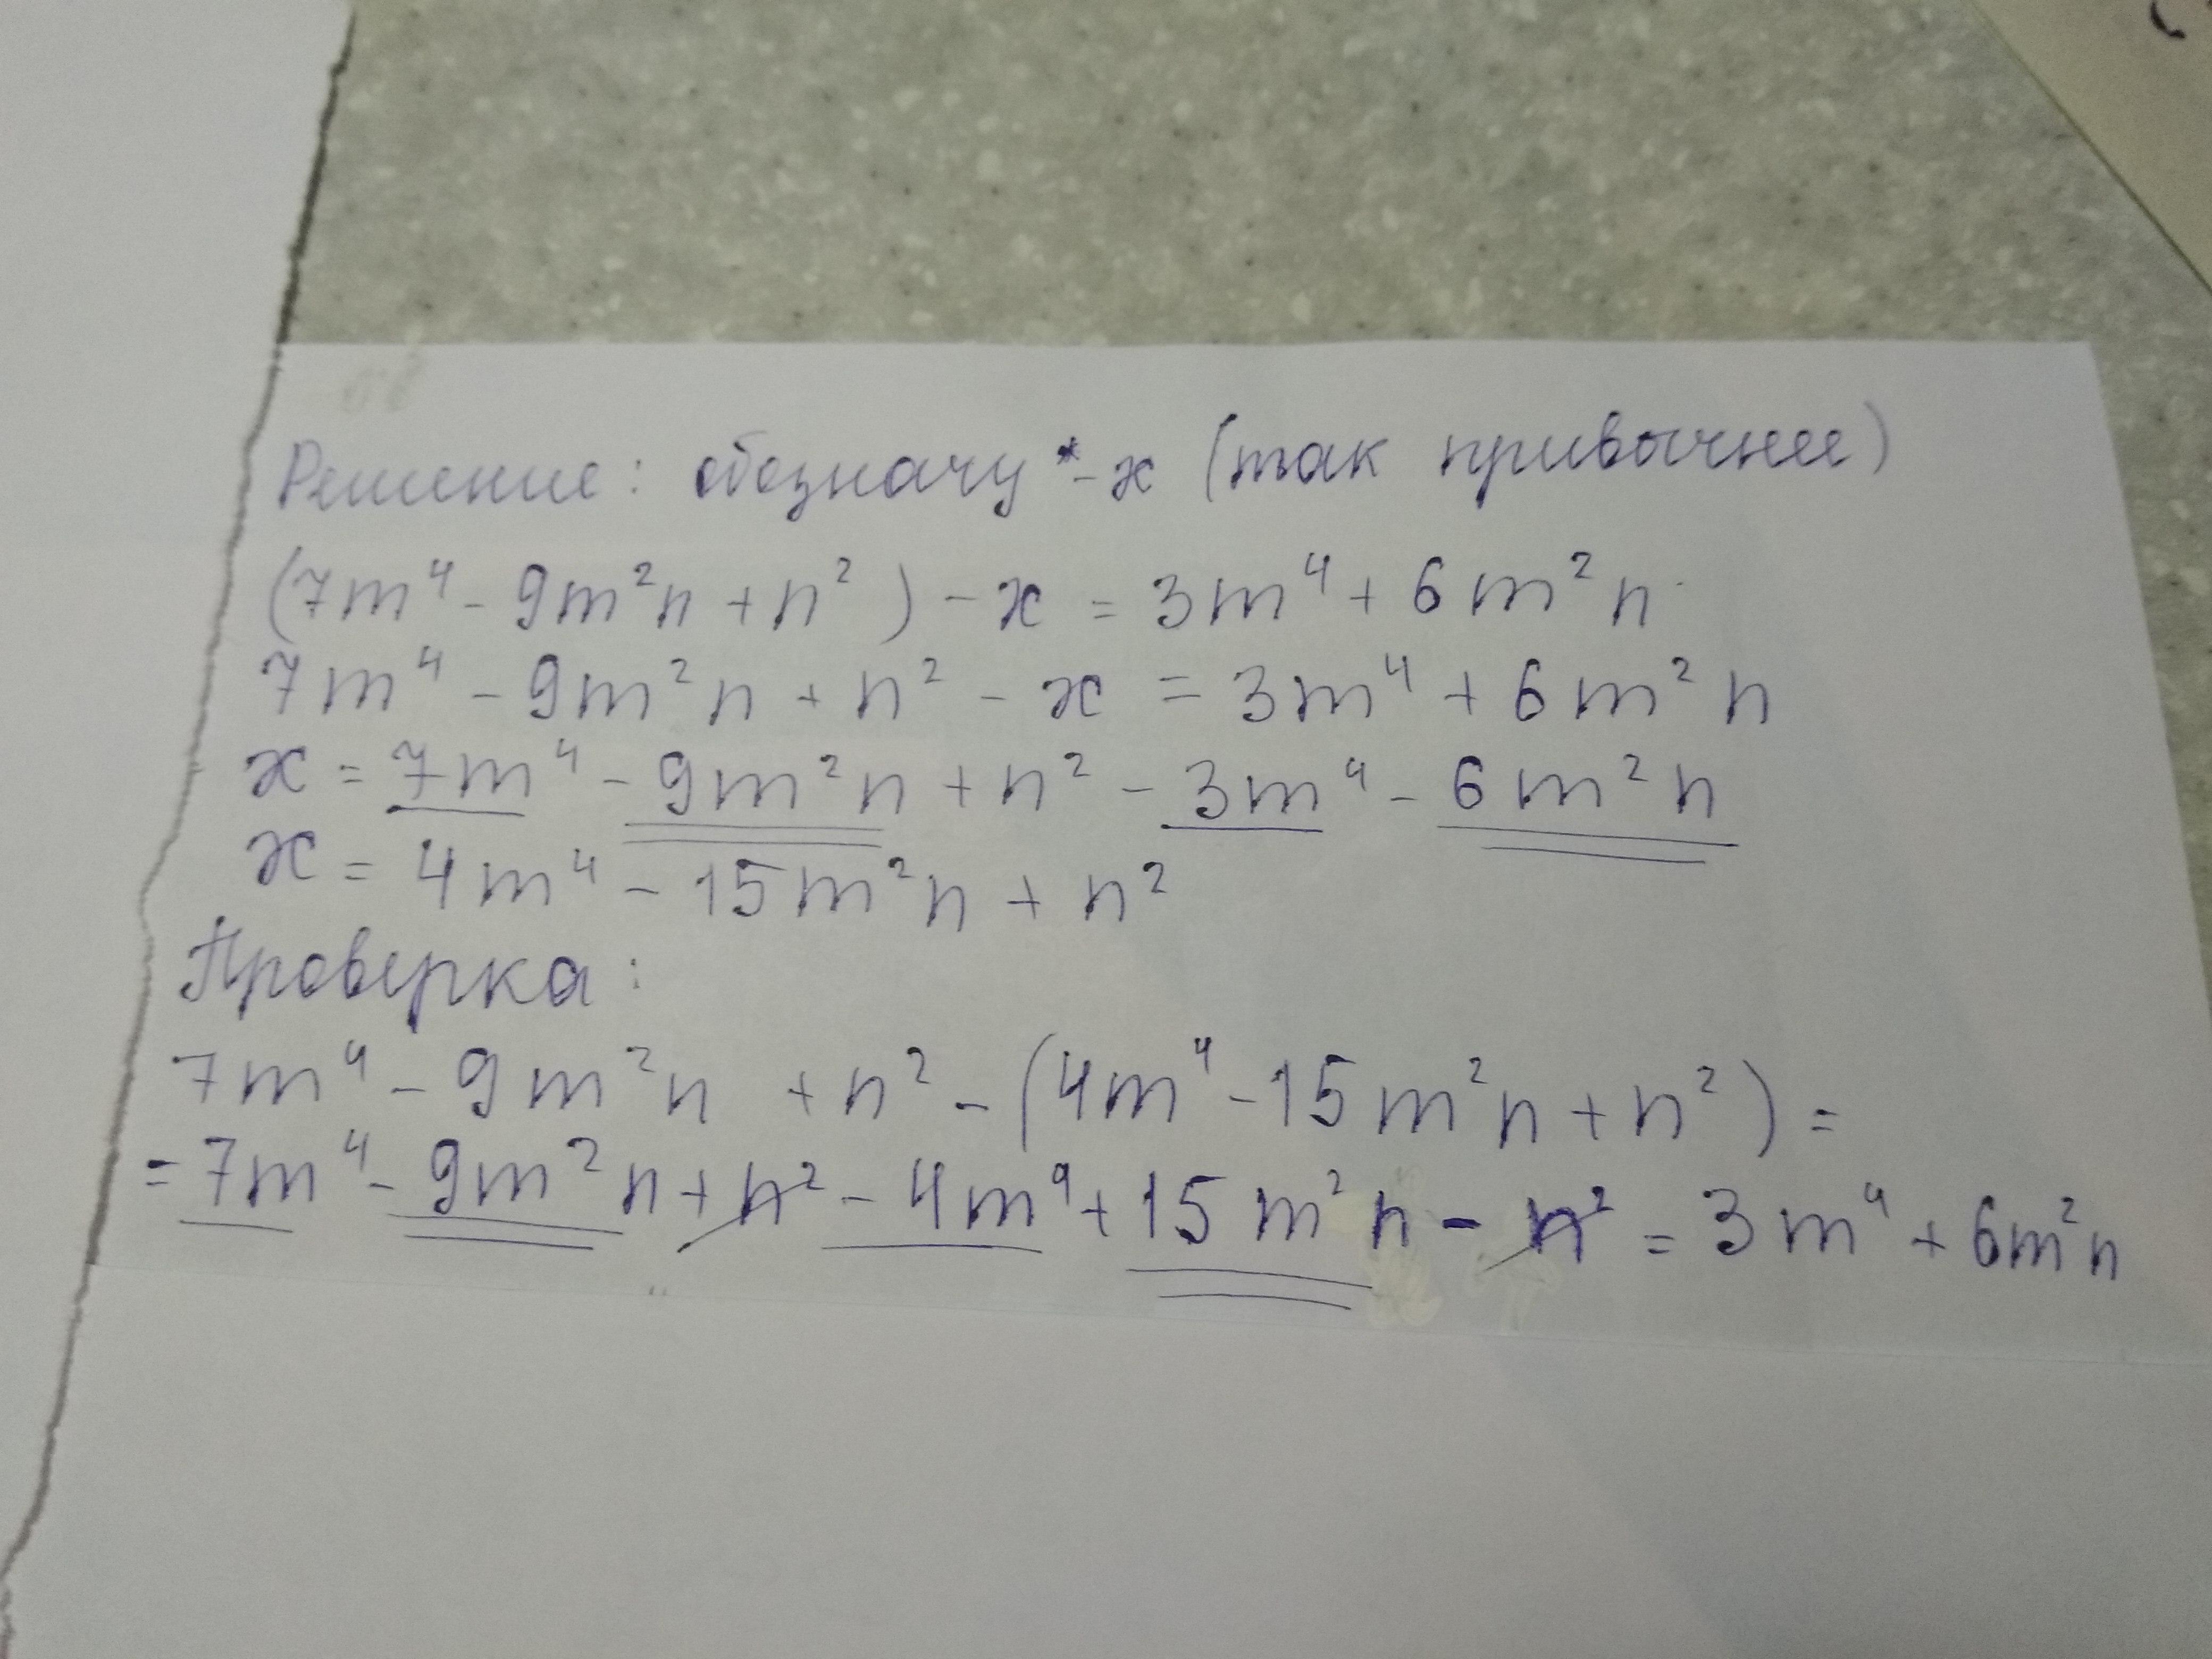 Решение: обозначу * - x (так привычнее)
(7m⁴ - 9m²n + n²) - x = 3m⁴ + 6m²n
7m⁴ - 9m²n + n² - x = 3m⁴ + 6m²n
x = 7m⁴ - 9m²n + n² - 3m⁴ - 6m²n
x = 4m⁴ - 15m²n + n²
Проверка:
7m⁴ - 9m²n + n² - (4m⁴ - 15m²n + n²) =
= 7m⁴ - 9m²n + n² - 4m⁴ + 15m²n - n² = 3m⁴ + 6m²n